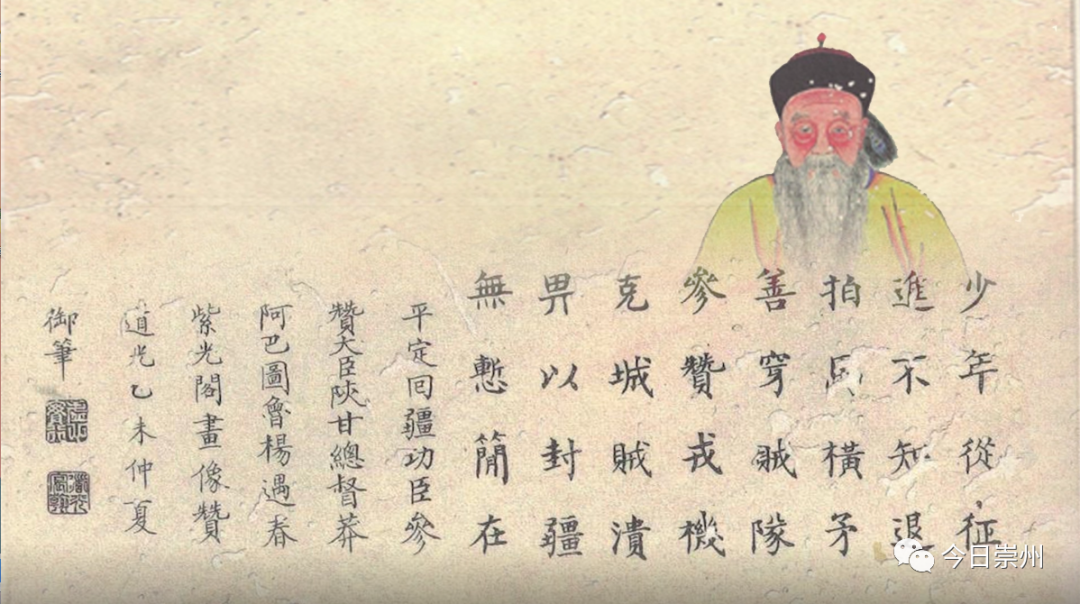 少年從征
進不知退
拍馬橫矛
善穿賊隊
參贊戎機
克城賊潰
畀以封疆
無慙簡在
平定回疆功臣參
贊大臣陝甘總督莽
阿巴圖魯楊遇春
紫光閣畫像贊
道光乙未仲夏
御筆
今日崇州